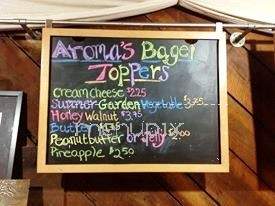 Aroma's Bagel
Toppers
Cream cheese $2.25
Summer Garden Vegetable $3.75
Honey Walnut $3.75
Butter
menupix
Peanutbutter or Jelly $2.00
Pineapple $2.50